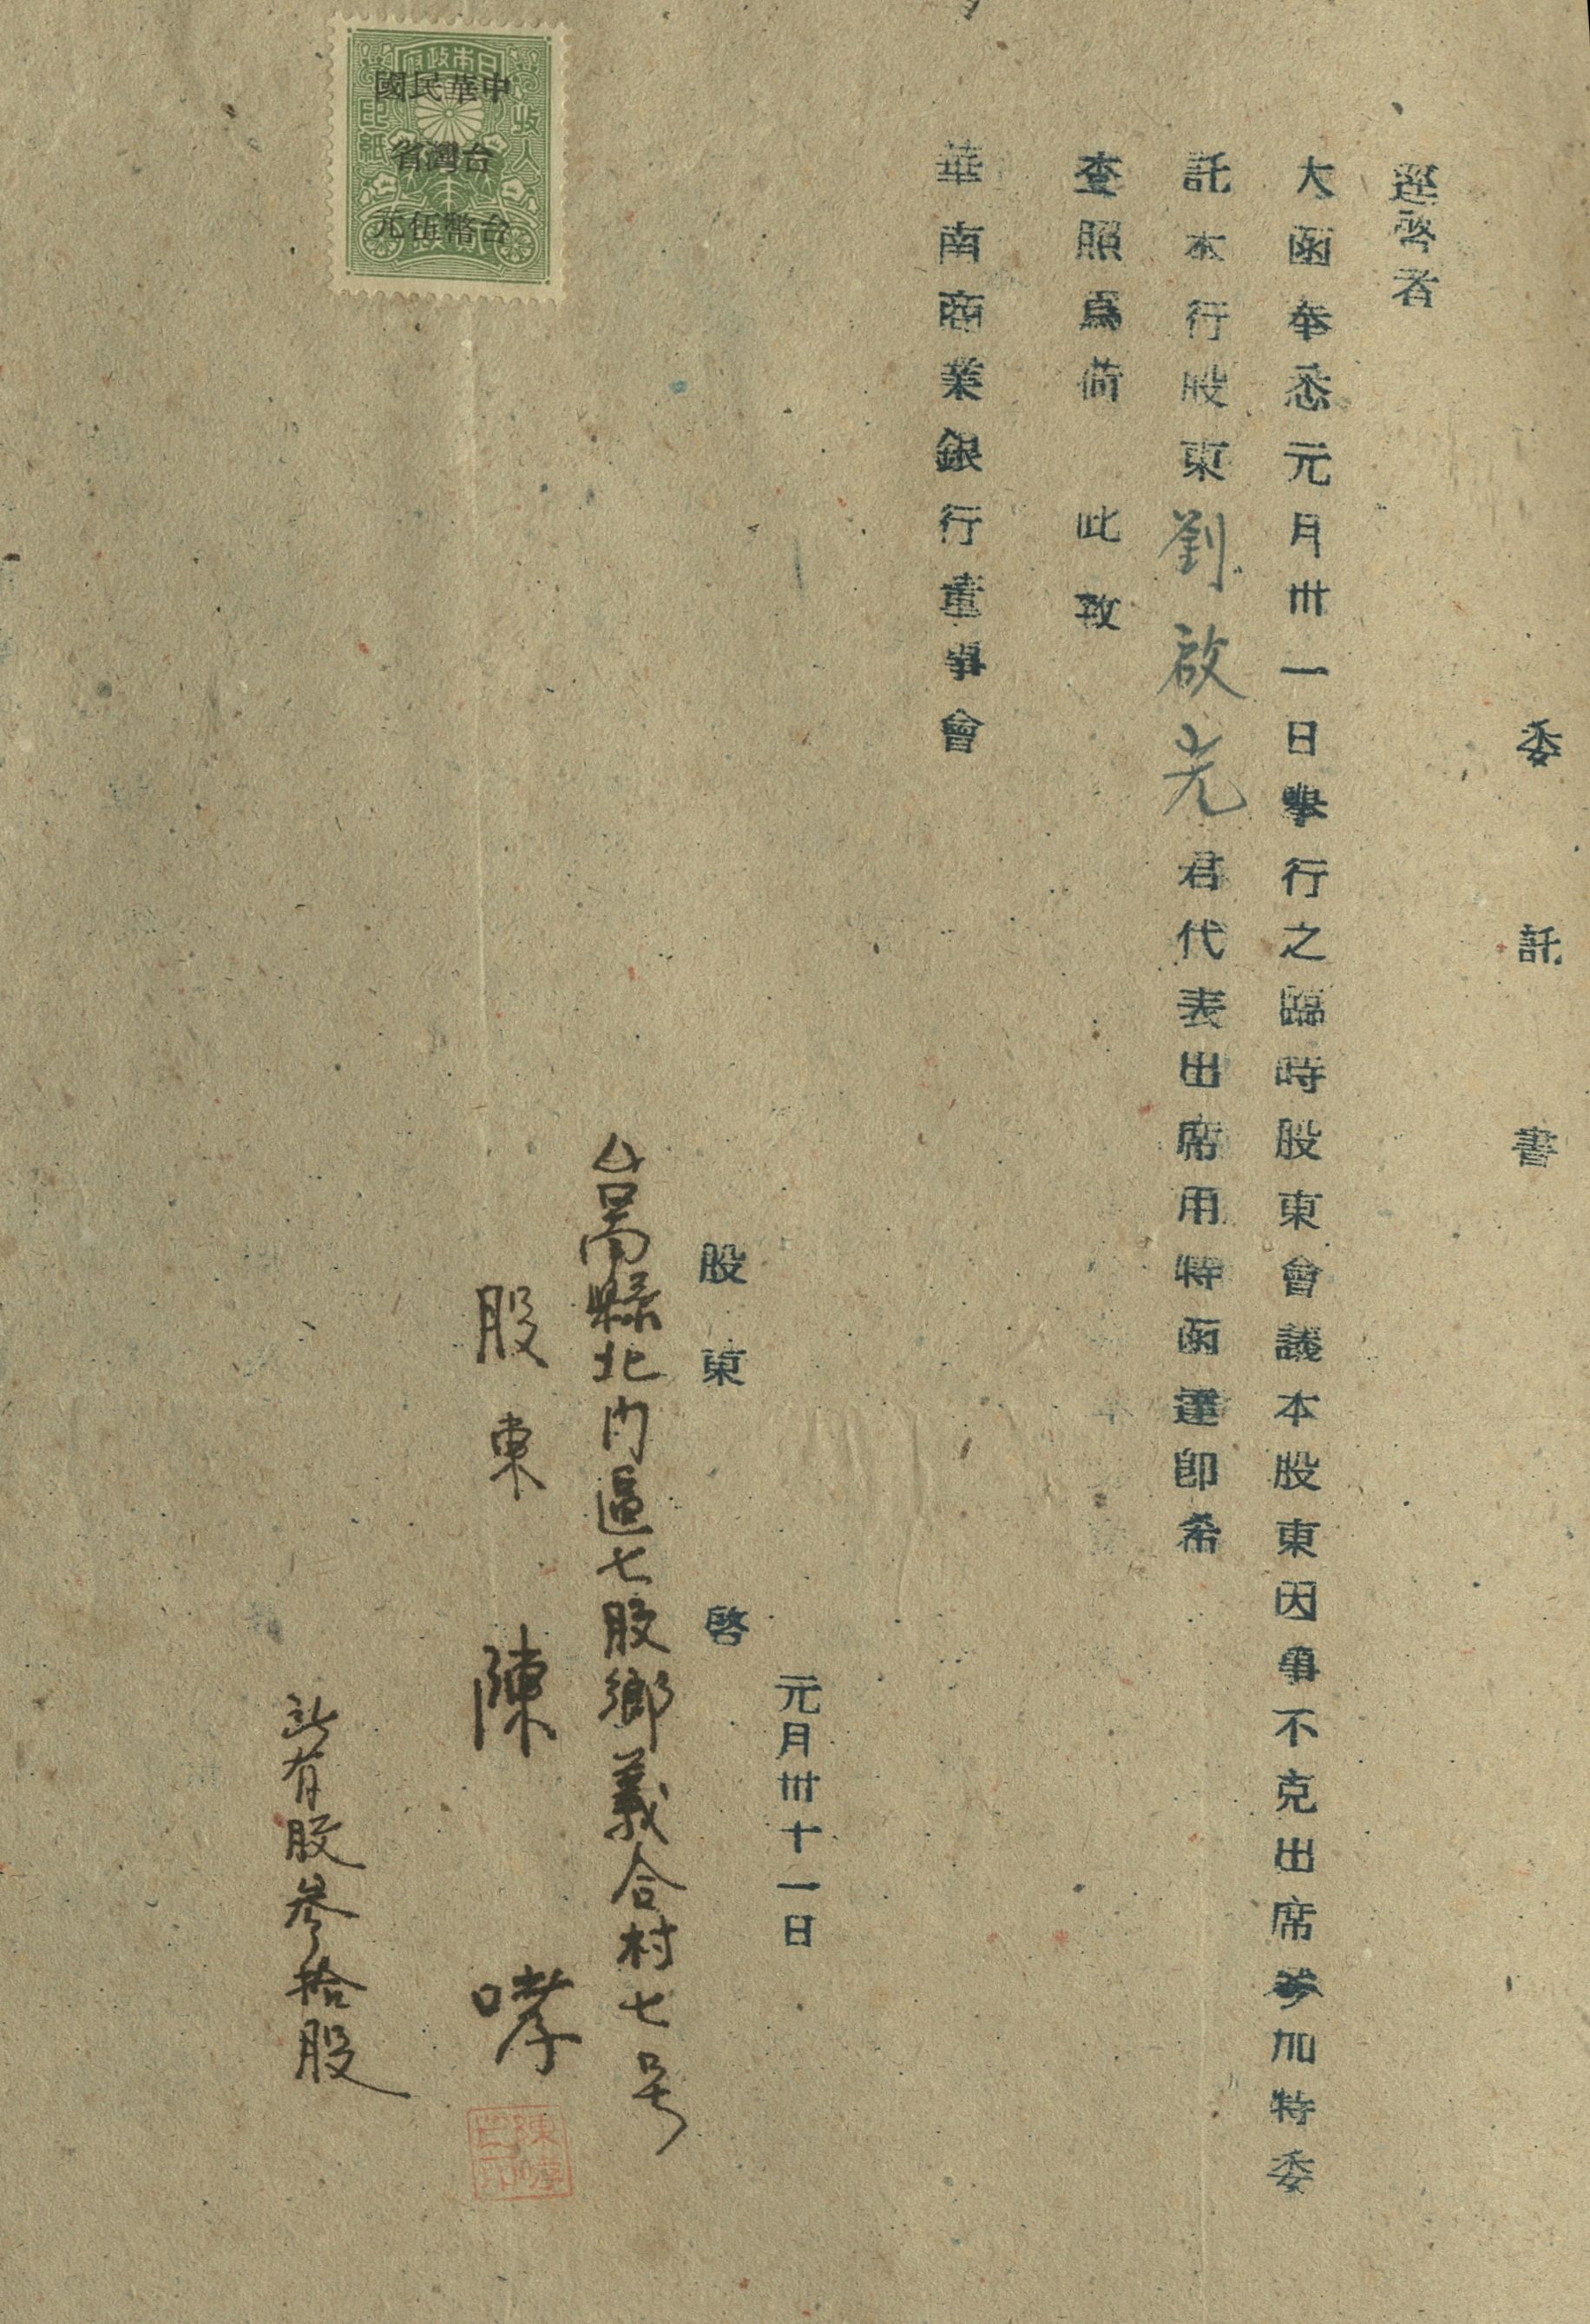 委託書
逕啓者
大函奉悉元月卅一日舉行之臨時股東會議本股東因事不克出席參加特委
託本行股東劉啟光君代表出席用特函達卽希
查照爲荷　此致
華南商業銀行董事會
元月卅十一日
股東　啓
台南縣北門區七股鄉義合村七号
股東　陳哮
所有股參拾股
日本政府
收入印紙
中華民國
台灣省
台幣伍元